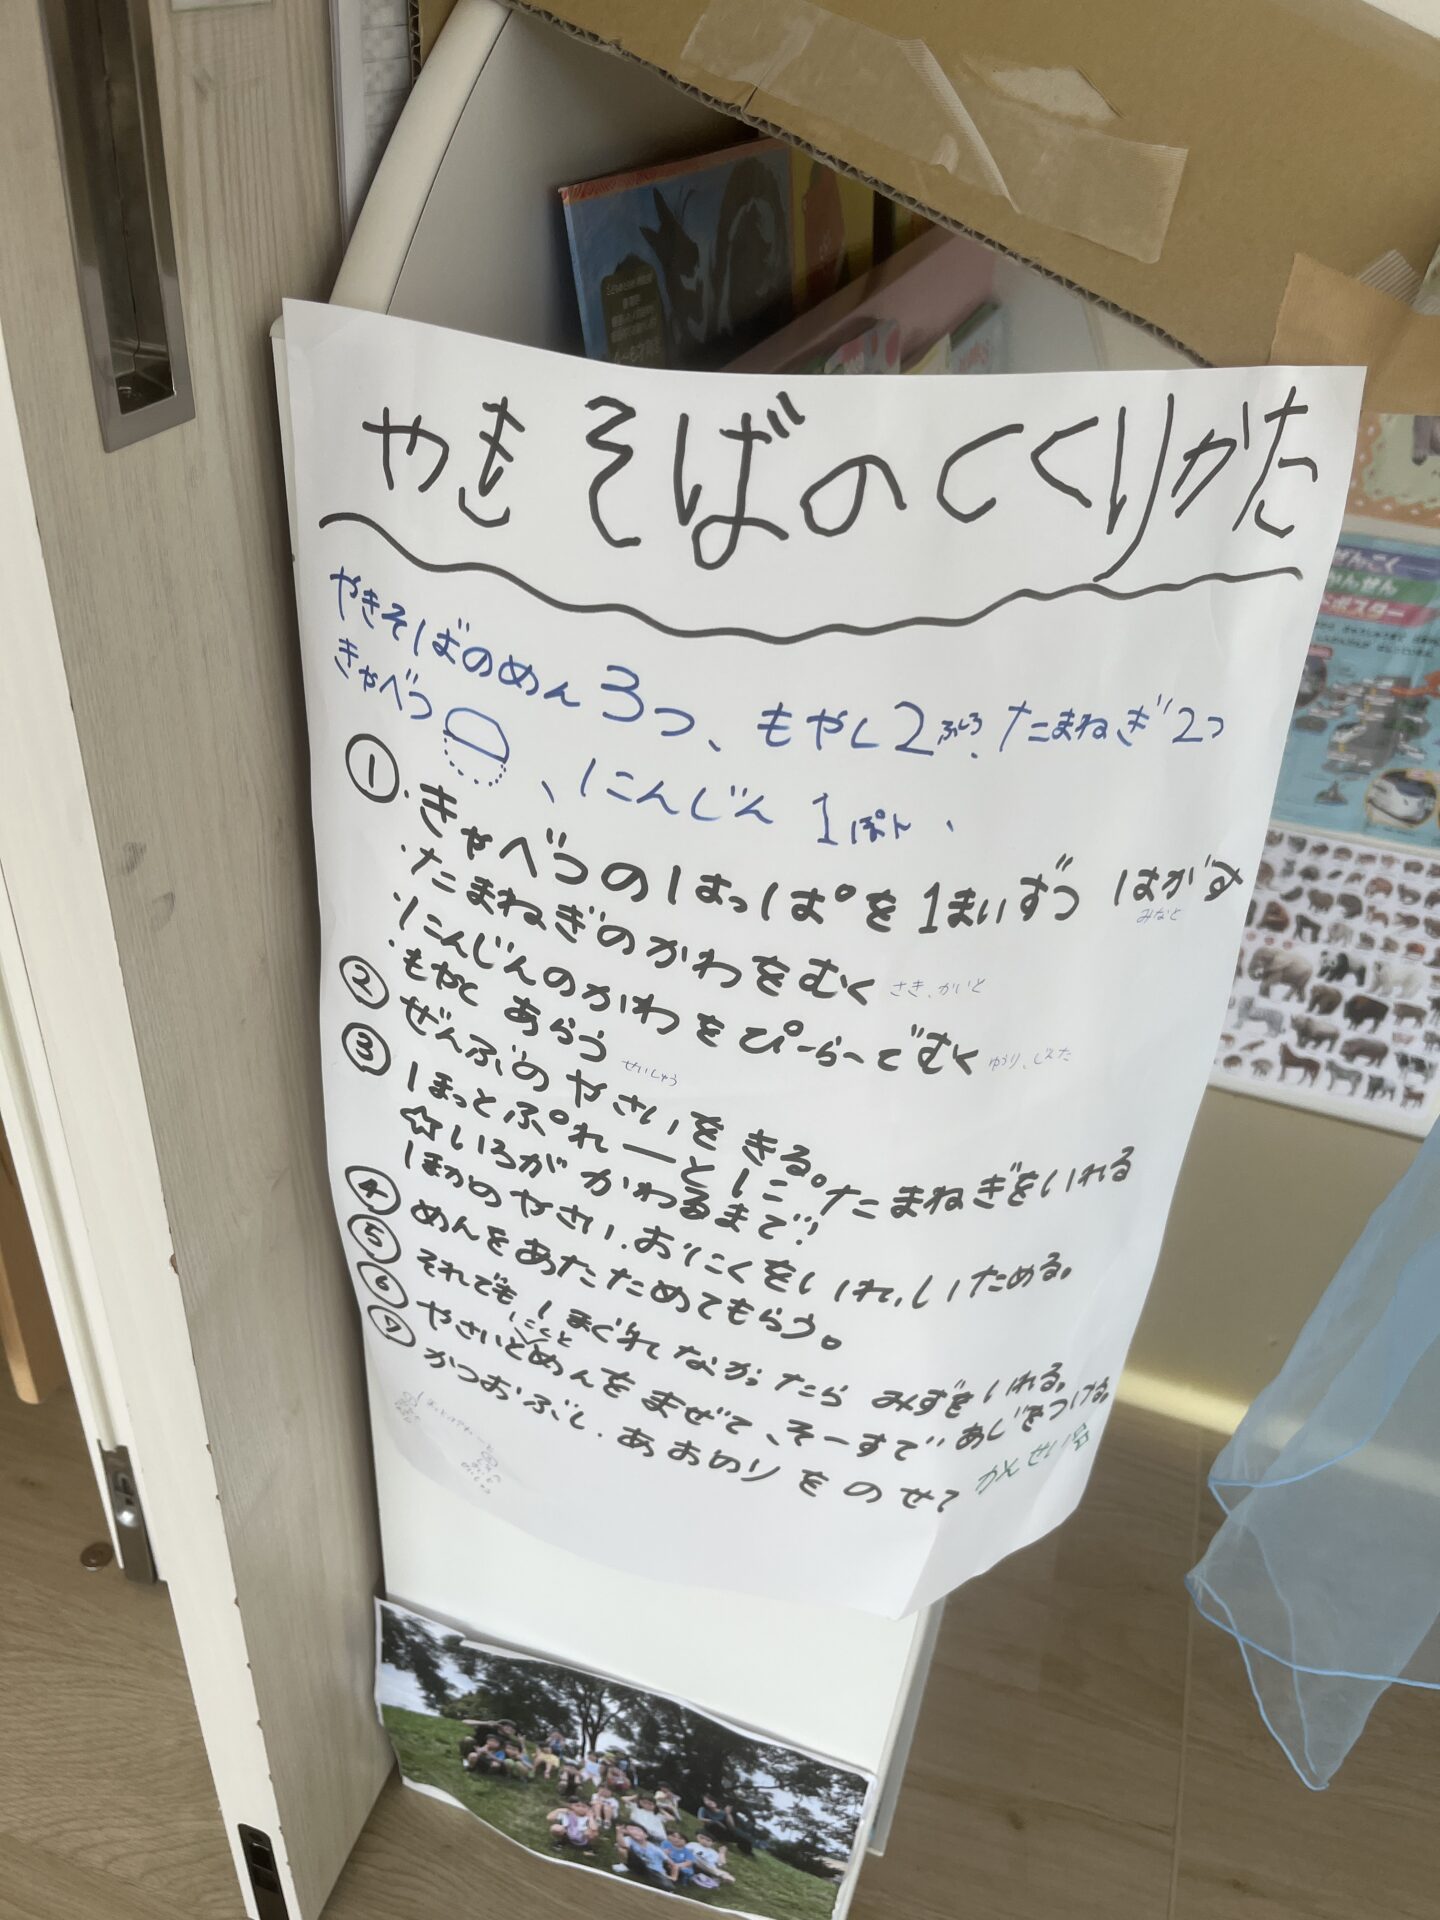 やきそばのつくりかた
やきそばのめん3つ、もやし2ふくろ、たまねぎ2つ
きゃべつ 、にんじん 1ぽん、
① ・きゃべつのはっぱを1まいずつ はがす
みなと
・たまねぎのかわをむく さき、かいと
・にんじんのかわをぴーらーでむく ゆうり、
・もやし あらう せいしゅう
② ぜんぶのやさいをきる。
③ ほっとぷれーとに たまねぎをいれる
☆いろがかわるまで!
ほかのやさい、おにくをいれ、いためる。
④ めんをあたためてもらう。
⑤ それでも ほぐれなかったら みずをいれる。
⑥ やさいとおにくとめんをまぜて、そーすであじをつける。
⑦ かつおぶし、あおのりをのせて かんせい☆
ぜんこく
かんせん
ポスター